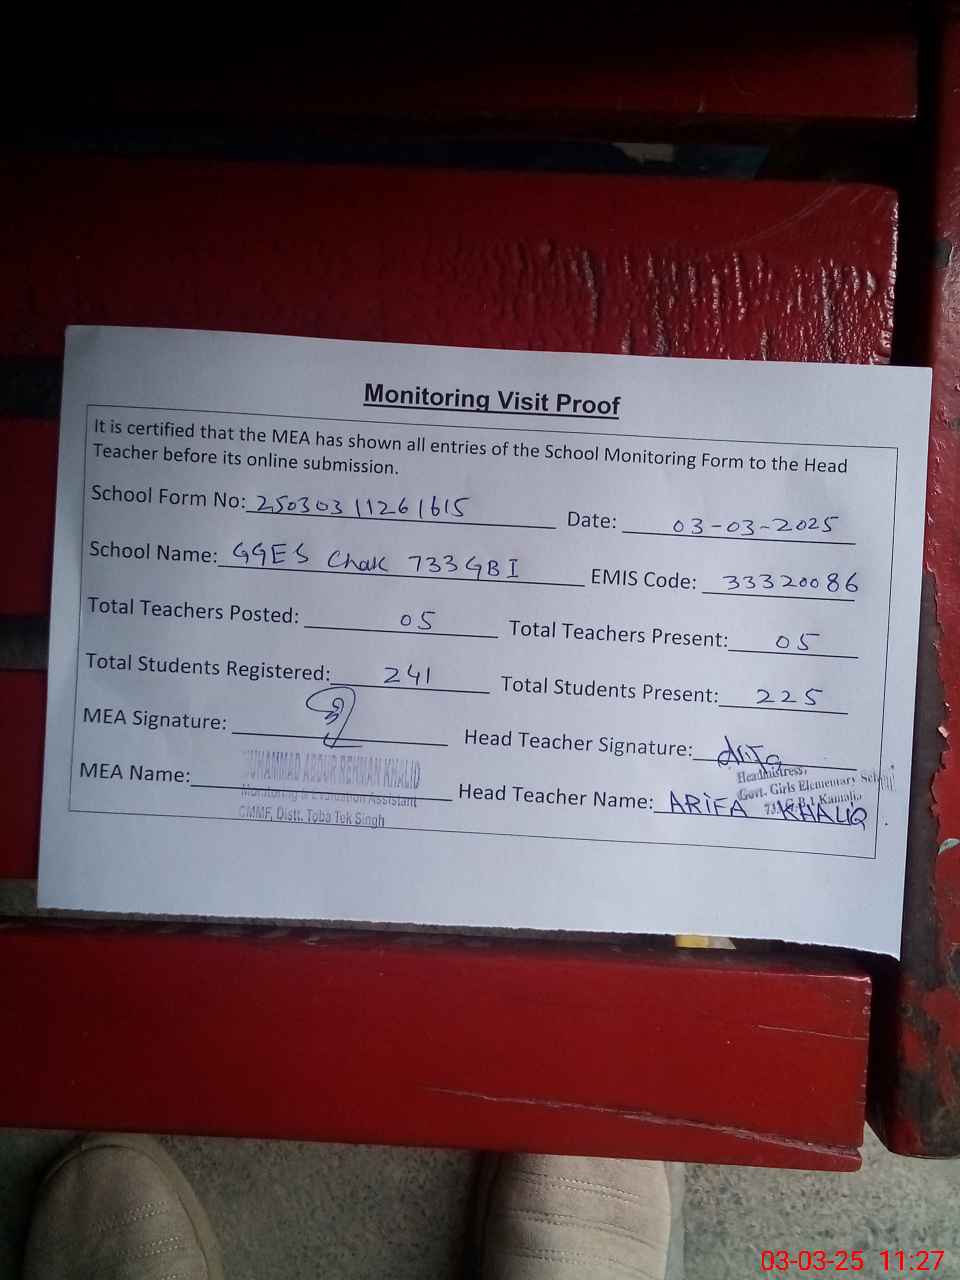 Monitoring Visit Proof
It is certified that the MEA has shown all entries of the School Monitoring Form to the Head
Teacher before its online submission.
School Form No: 25030311261615 Date: 03-03-2025
School Name: GGES Chak 733 GB I EMIS Code: 33320086
Total Teachers Posted: 05 Total Teachers Present: 05
Total Students Registered: 241 Total Students Present: 225
MEA Signature: Head Teacher Signature:
MEA Name: MUHAMMAD ABDUR REHMAN KHALID
Monitoring & Evaluation Assistant
CMMF, Distt. Toba Tek Singh
Headmistress,
Govt. Girls Elementary School
Kamalia
Head Teacher Name: ARIFA KHALIQ
03-03-25 11:27